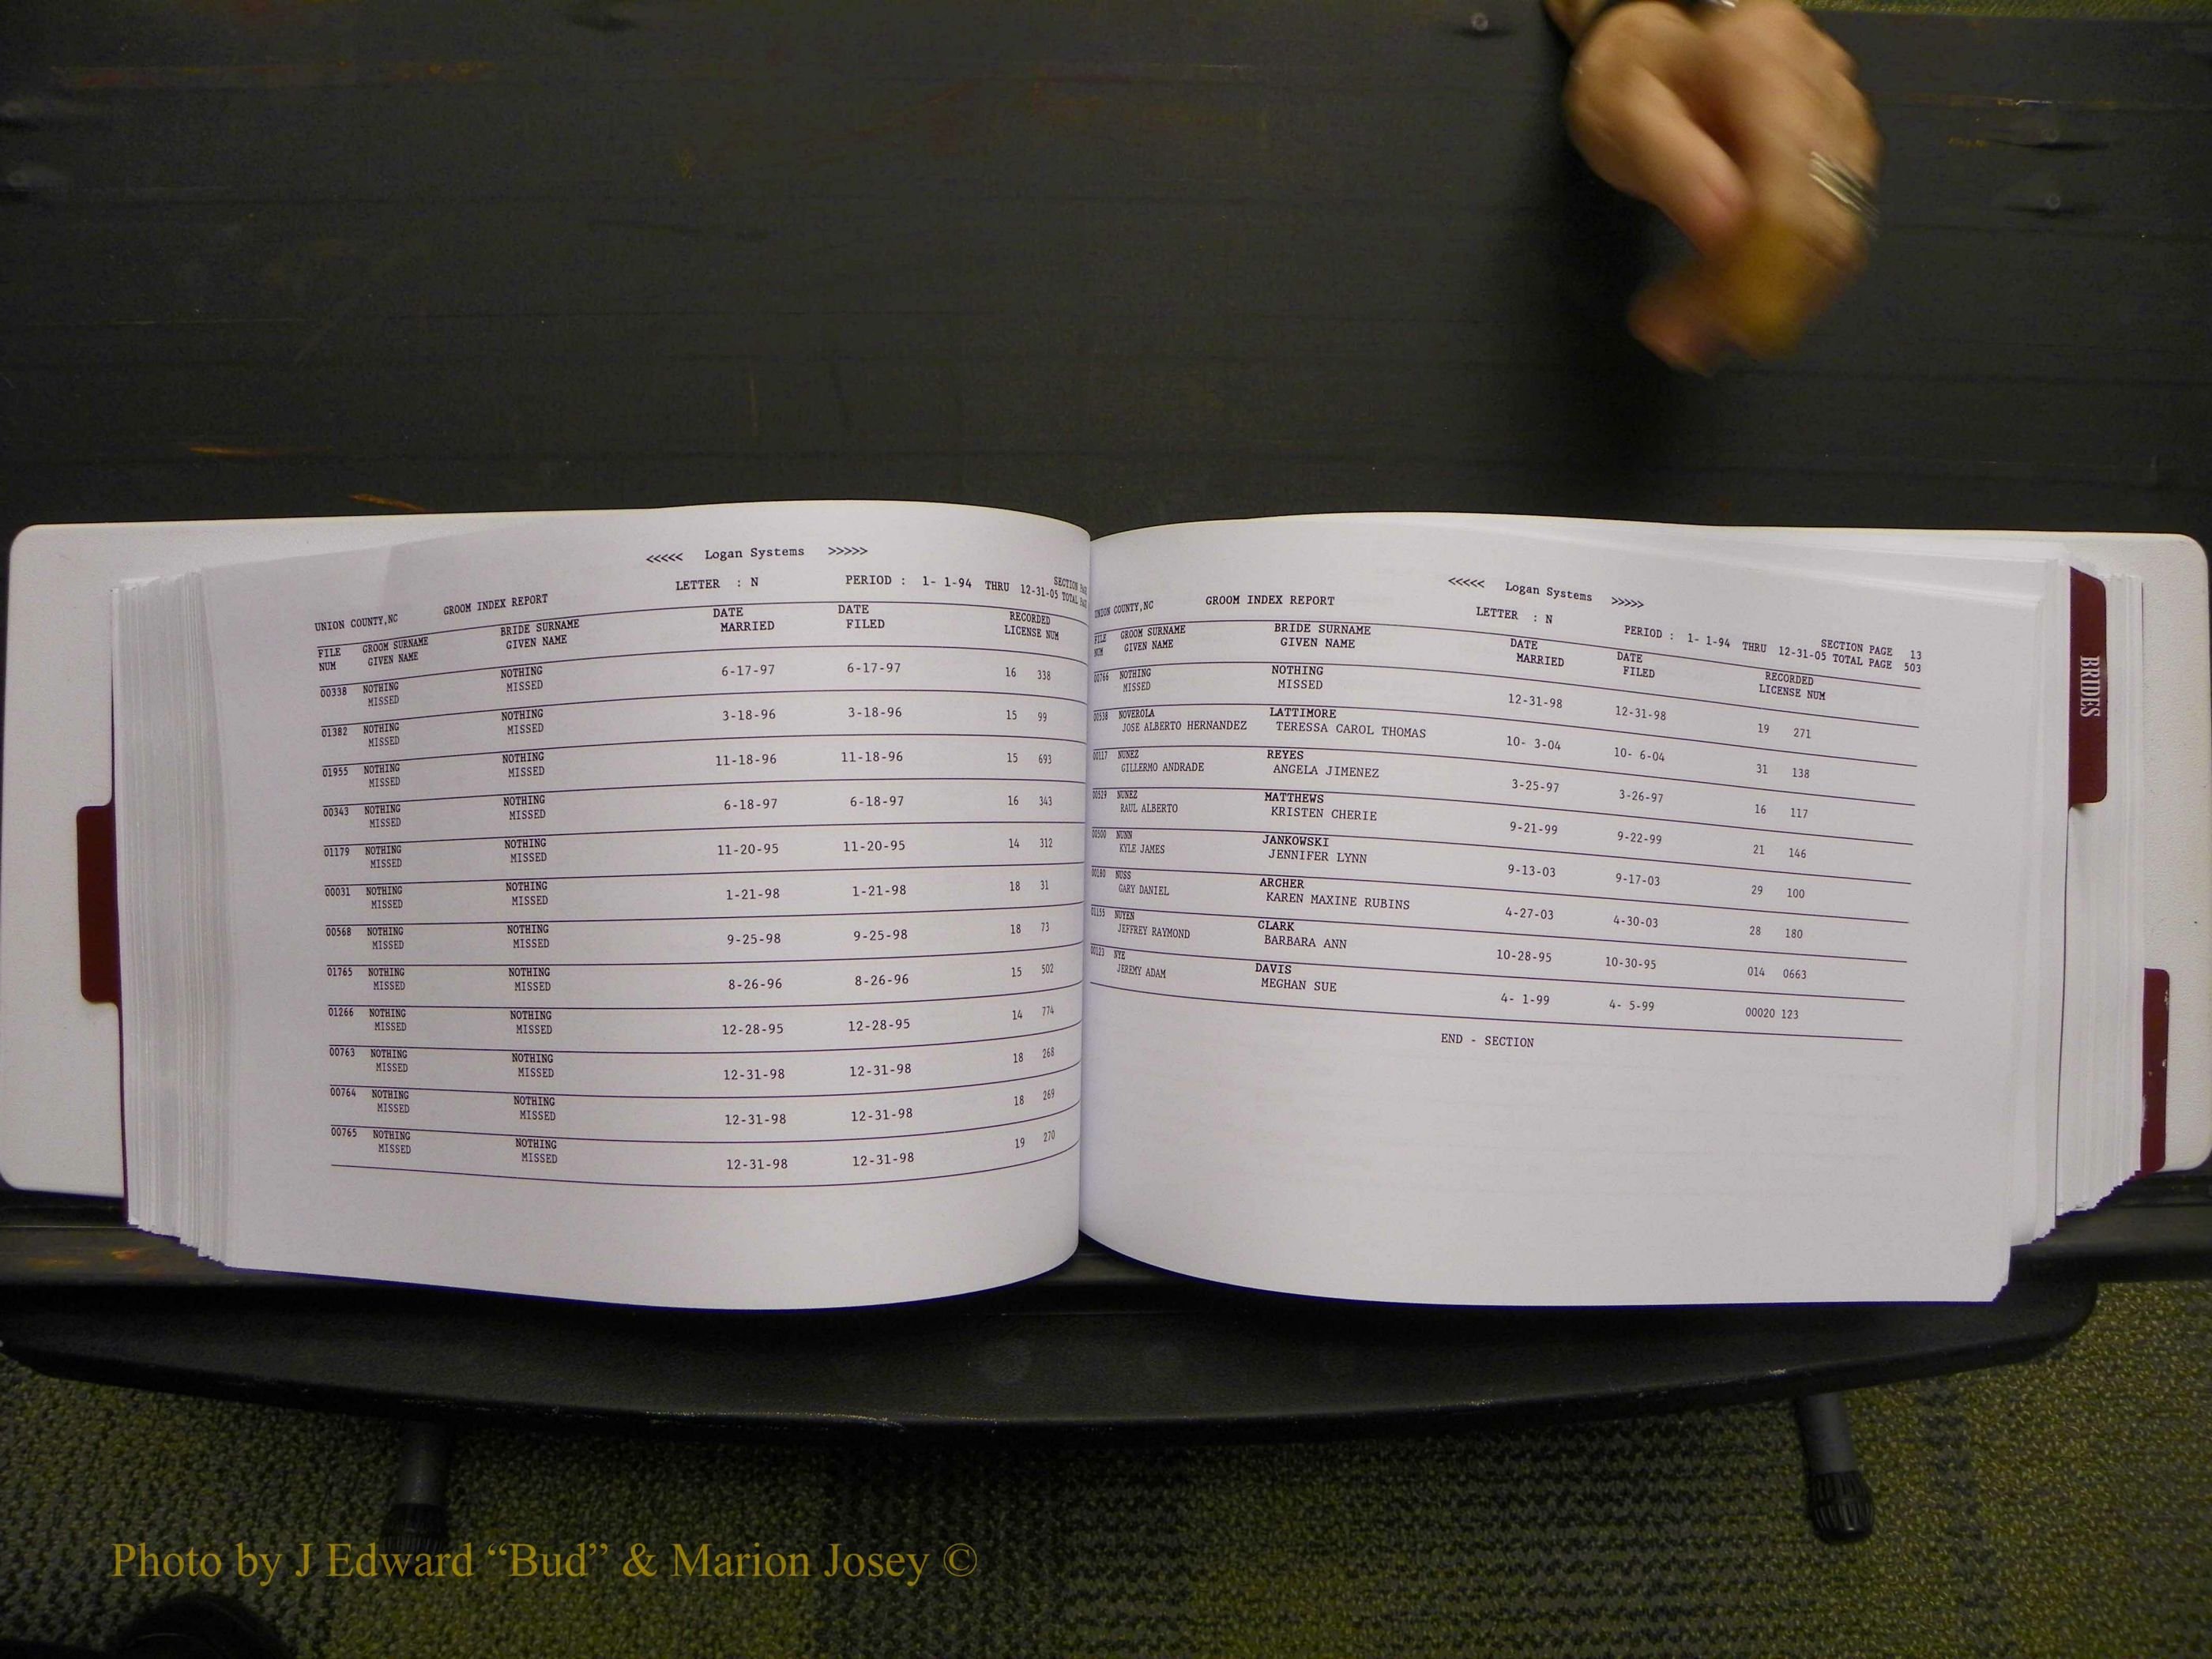 <<<<< Logan Systems >>>>>
LETTER : N PERIOD : 1- 1-94 THRU 12-31-05 TOTAL
SECTION
UNION COUNTY,NC GROOM INDEX REPORT
FILE GROOM SURNAME BRIDE SURNAME DATE DATE RECORDED
NUM GIVEN NAME GIVEN NAME MARRIED FILED LICENSE NUM
00338 NOTHING NOTHING 6-17-97 6-17-97 16 338
MISSED MISSED
01382 NOTHING NOTHING 3-18-96 3-18-96 15 99
MISSED MISSED
01955 NOTHING NOTHING 11-18-96 11-18-96 15 693
MISSED MISSED
00343 NOTHING NOTHING 6-18-97 6-18-97 16 343
MISSED MISSED
01179 NOTHING NOTHING 11-20-95 11-20-95 14 312
MISSED MISSED
00031 NOTHING NOTHING 1-21-98 1-21-98 18 31
MISSED MISSED
00568 NOTHING NOTHING 9-25-98 9-25-98 18 73
MISSED MISSED
01765 NOTHING NOTHING 8-26-96 8-26-96 15 502
MISSED MISSED
01266 NOTHING NOTHING 12-28-95 12-28-95 14 774
MISSED MISSED
00763 NOTHING NOTHING 12-31-98 12-31-98 18 268
MISSED MISSED
00764 NOTHING NOTHING 12-31-98 12-31-98 18 269
MISSED MISSED
00765 NOTHING NOTHING 12-31-98 12-31-98 19 270
MISSED MISSED
<<<<< Logan Systems >>>>>
UNION COUNTY,NC GROOM INDEX REPORT LETTER : N SECTION PAGE 13
PERIOD : 1- 1-94 THRU 12-31-05 TOTAL PAGE 503
FILE GROOM SURNAME BRIDE SURNAME DATE DATE RECORDED
NUM GIVEN NAME GIVEN NAME MARRIED FILED LICENSE NUM
00766 NOTHING NOTHING 12-31-98 12-31-98 19 271
MISSED MISSED
00538 NOVEROLA LATTIMORE 10- 3-04 10- 6-04 31 138
JOSE ALBERTO HERNANDEZ TERESSA CAROL THOMAS
00117 NUNEZ REYES 3-25-97 3-26-97 16 117
GILLERMO ANDRADE ANGELA JIMENEZ
00529 NUNEZ MATTHEWS 9-21-99 9-22-99 21 146
RAUL ALBERTO KRISTEN CHERIE
00500 NUNN JANKOWSKI 9-13-03 9-17-03 29 100
KYLE JAMES JENNIFER LYNN
00180 NUSS ARCHER 4-27-03 4-30-03 28 180
GARY DANIEL KAREN MAXINE RUBINS
01155 NUYEN CLARK 10-28-95 10-30-95 014 0663
JEFFREY RAYMOND BARBARA ANN
00123 NYE DAVIS 4- 1-99 4- 5-99 00020 123
JEREMY ADAM MEGHAN SUE
END - SECTION
BRIDES
Photo by J Edward “Bud” & Marion Josey ©